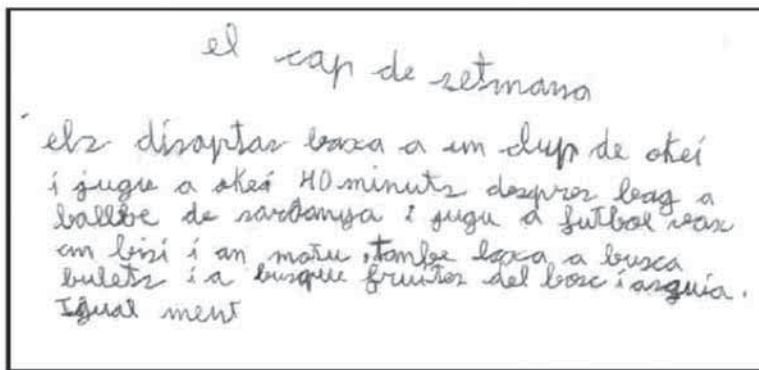 el cap de setmana
els disaptas baxa a un clup de okei
i jugu a okei 40 minuts despres bag a
ballbe de sardanya i jugu a futbol vax
am bisi i an motu, tambe baxa a busca
bulets i a busque fruites del bosc i asquia.
Igual ment